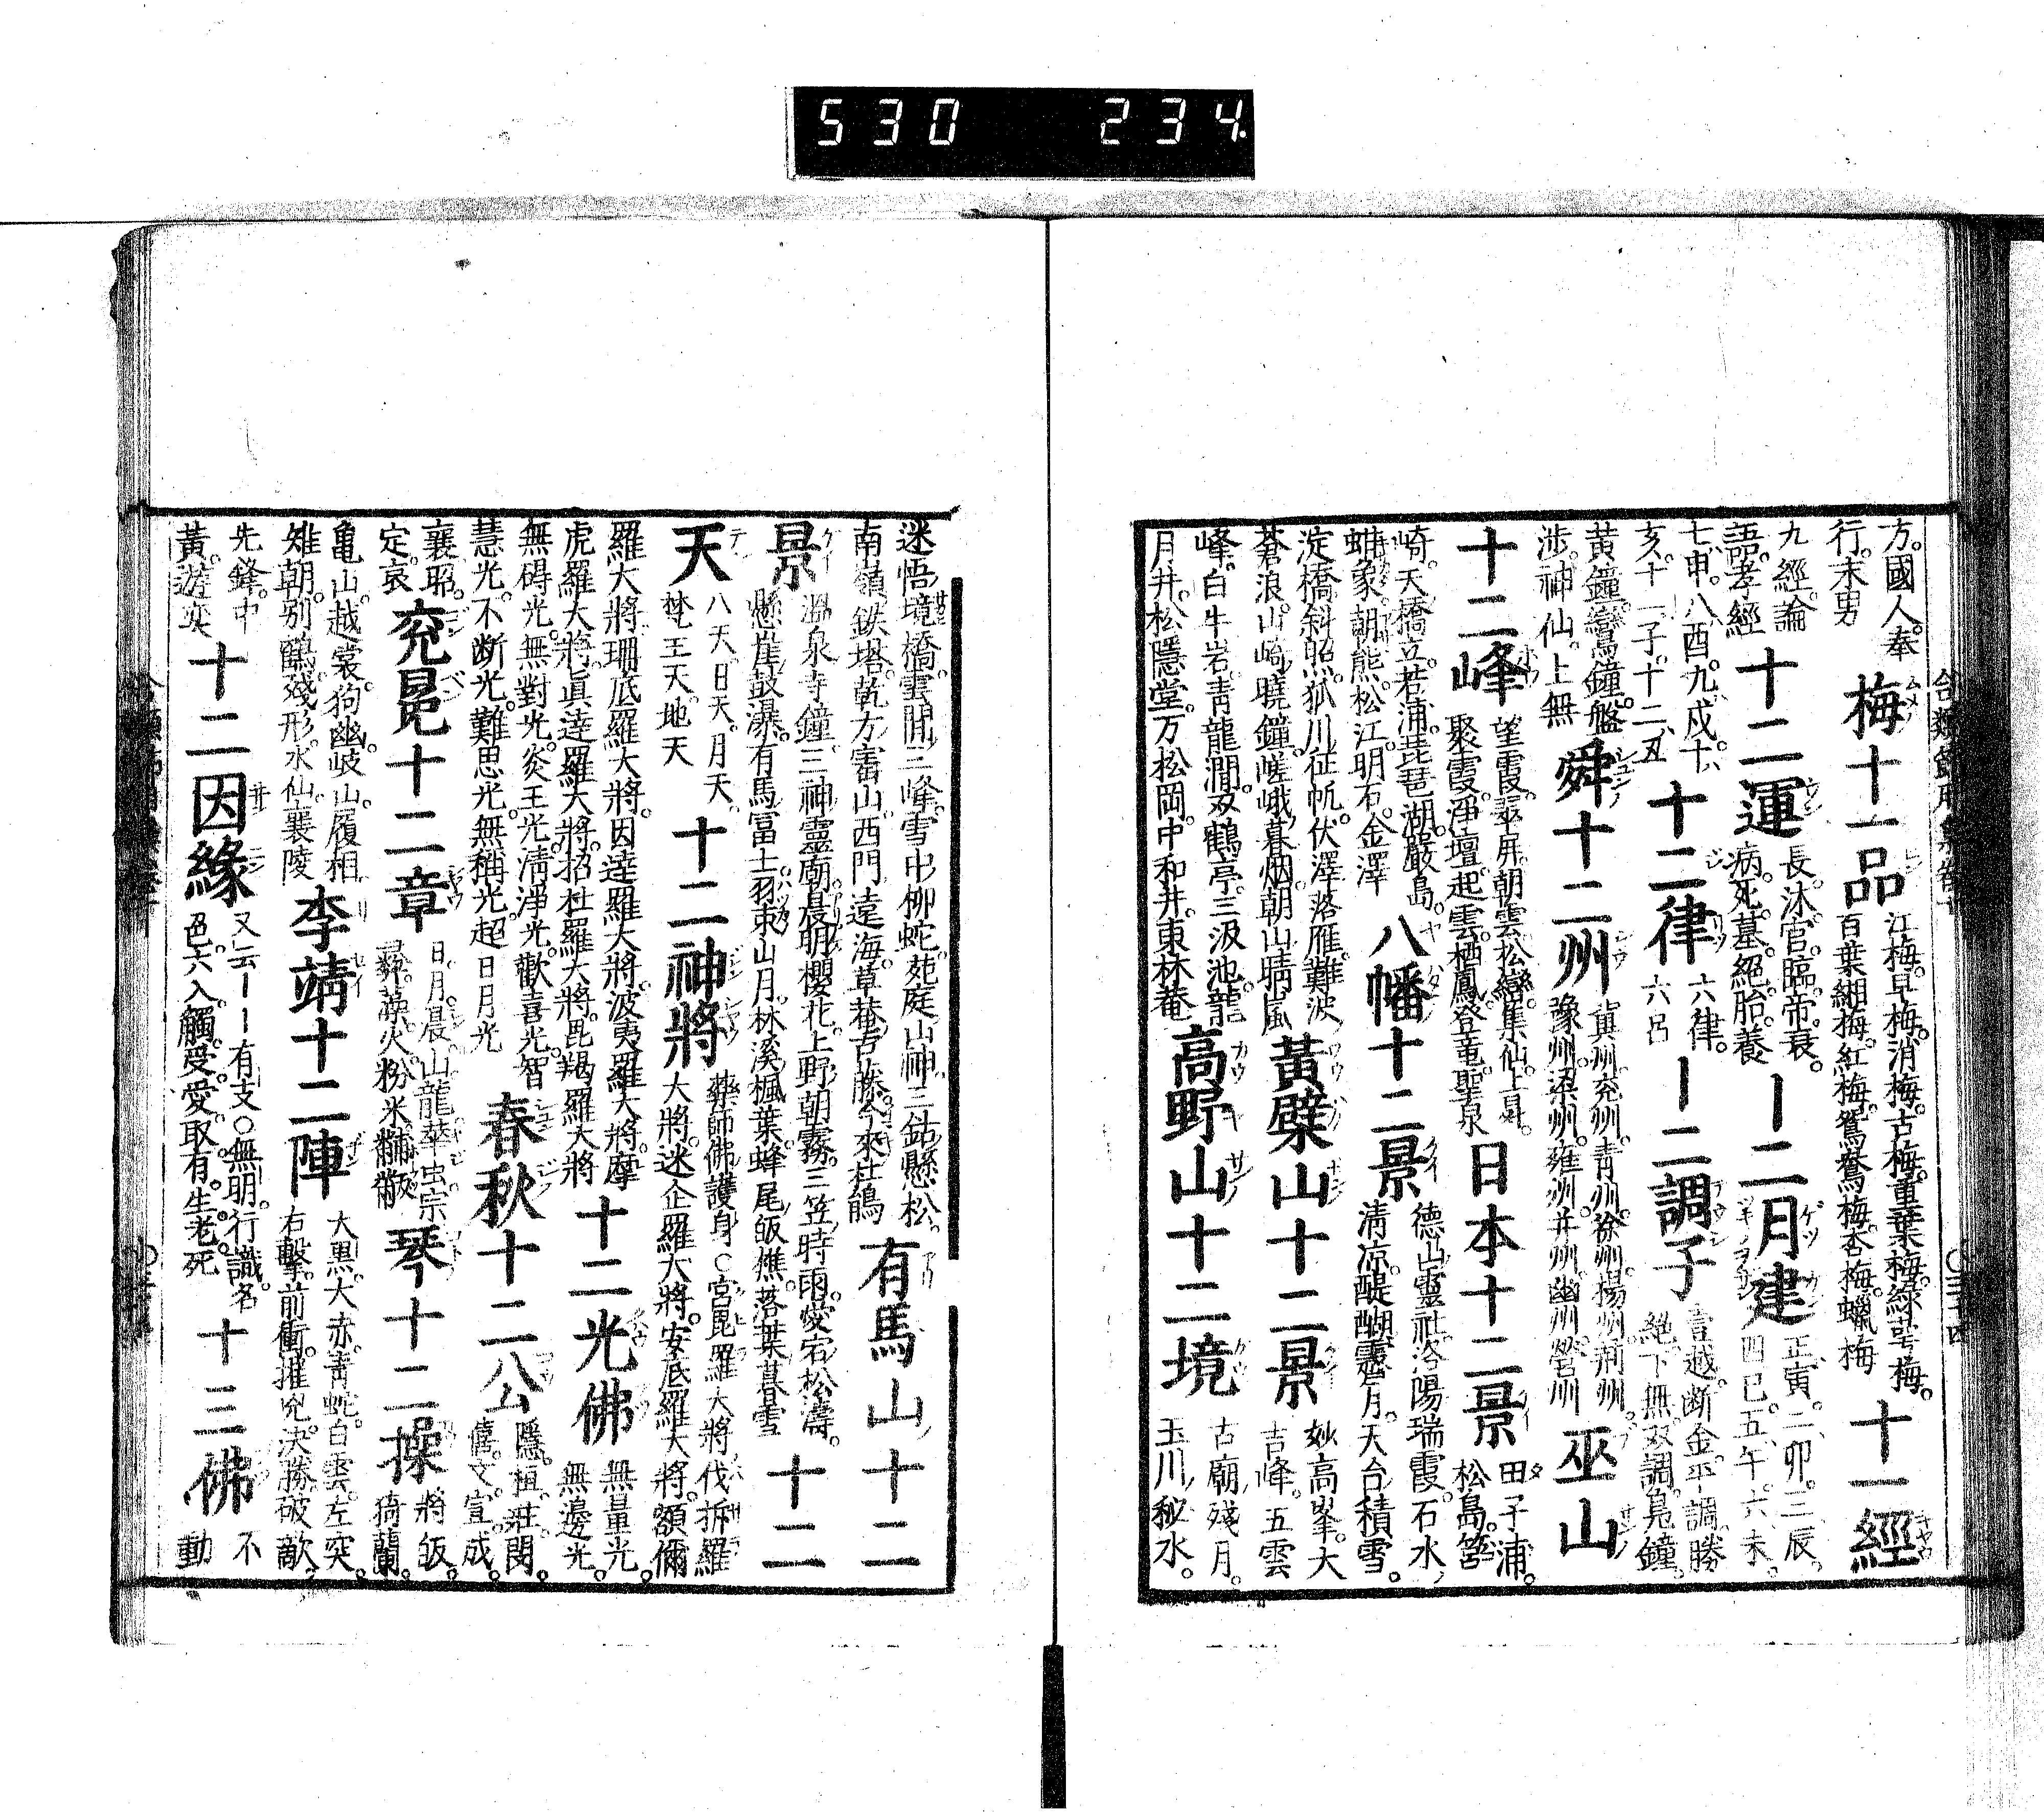 530 234
方。國人。奉
行。末男
梅十一品
江梅。早梅。消梅。古梅。重葉梅。綠萼梅。
百葉緗梅。紅梅。鴛鴦梅。杏梅。蠟梅
十一經
九經。論
語。孝經
十二運
長。沐。官。臨。帝。衰。
病。死。墓。絕。胎。養
十二月建
正寅。二卯。三辰。
四巳。五午。六未。
七申。八酉。九戌。十
亥。十一子。十二丑
十二律
六律。
六呂
十二調子
壹越。斷金。平調。勝
絕。下無。双調。鳧鐘。
黃鐘。鸞鐘。盤
涉。神仙。上無
舜十二州
冀州。兗州。青州。徐州。揚州。荊州。
豫州。梁州。雍州。幷州。幽州。營州
巫山
十二峰
望霞。翠屏。朝雲。松巒。集仙。上昇。
聚霞。淨壇。起雲。栖鳳。登竜。聖泉
日本十二景
田子浦。
松島。筥
崎。天橋立。若浦。琵琶湖。嚴島。
蚶象。朝熊。松江。明石。金澤
八幡十二景
德山靈社。洛陽瑞霞。石水
清凉。醍醐霽月。天台積雪。
淀橋斜照。狐川征帆。伏澤落雁。難波
蒼浪。山崎曉鐘。嵯峨暮烟。朝山晴嵐
黃檗山十二景
妙高峯。大
吉峰。五雲
峰。白牛岩。青龍澗。双鶴亭。三汲池。龍
月井。松隱堂。万松岡。中和井。東林菴
高野山十二境
古廟殘月。
玉川秘水。
迷悟境橋。雲開三峰。雪中柳。蛇苑庭。山神三鈷懸松。
南嶺鉄塔。乾方靈山。西門遠海。草菴古藤。今來杜鵑
有馬山十二
景
溫泉寺鐘。三神靈廟。有明櫻花。上野朝霧。三笠時雨。愛宕松濤。
懸崖鼓瀑。有馬冨士。羽束山月。林溪楓葉。蜂尾皈樵。落葉暮雪
十二
天
八天。日天。月天。
梵王天。地天
十二神將
藥師佛護身○宮毘羅大將。伐拆羅
大將。迷企羅大將。安底羅大將。額儞
羅大將。珊底羅大將。因達羅大將。波夷羅大將。摩
虎羅大將。眞達羅大將。招杜羅大將。毘羯羅大將
十二光佛
無量光。
無邊光。
無碍光。無對光。炎王光。清淨光。歡喜光。智
慧光。不断光。難思光。無稱光。超日月光
春秋十二公
隱。桓。莊。閔。
僖。文。宣。成。
襄。昭。
定。哀
兗冕十二章
日。月。晨。山。龍。華虫。宗
彝。藻。火。粉米。黼。黻
琴十二操
將皈。
猗蘭。
亀山。越裳。狗幽。岐山。履相。
雉朝。別鶴。殘形。水仙。襄陵
李靖十二陣
大黒。大赤。青蛇。白雲。左突。
右擊。前衝。摧兇。決勝。破敵。
先鋒。中
黃。遊奕
十二因緣
又云——有支○無明。行。識。名
色。六入。觸。受。愛。取。有。生。老死
十三佛
不
動